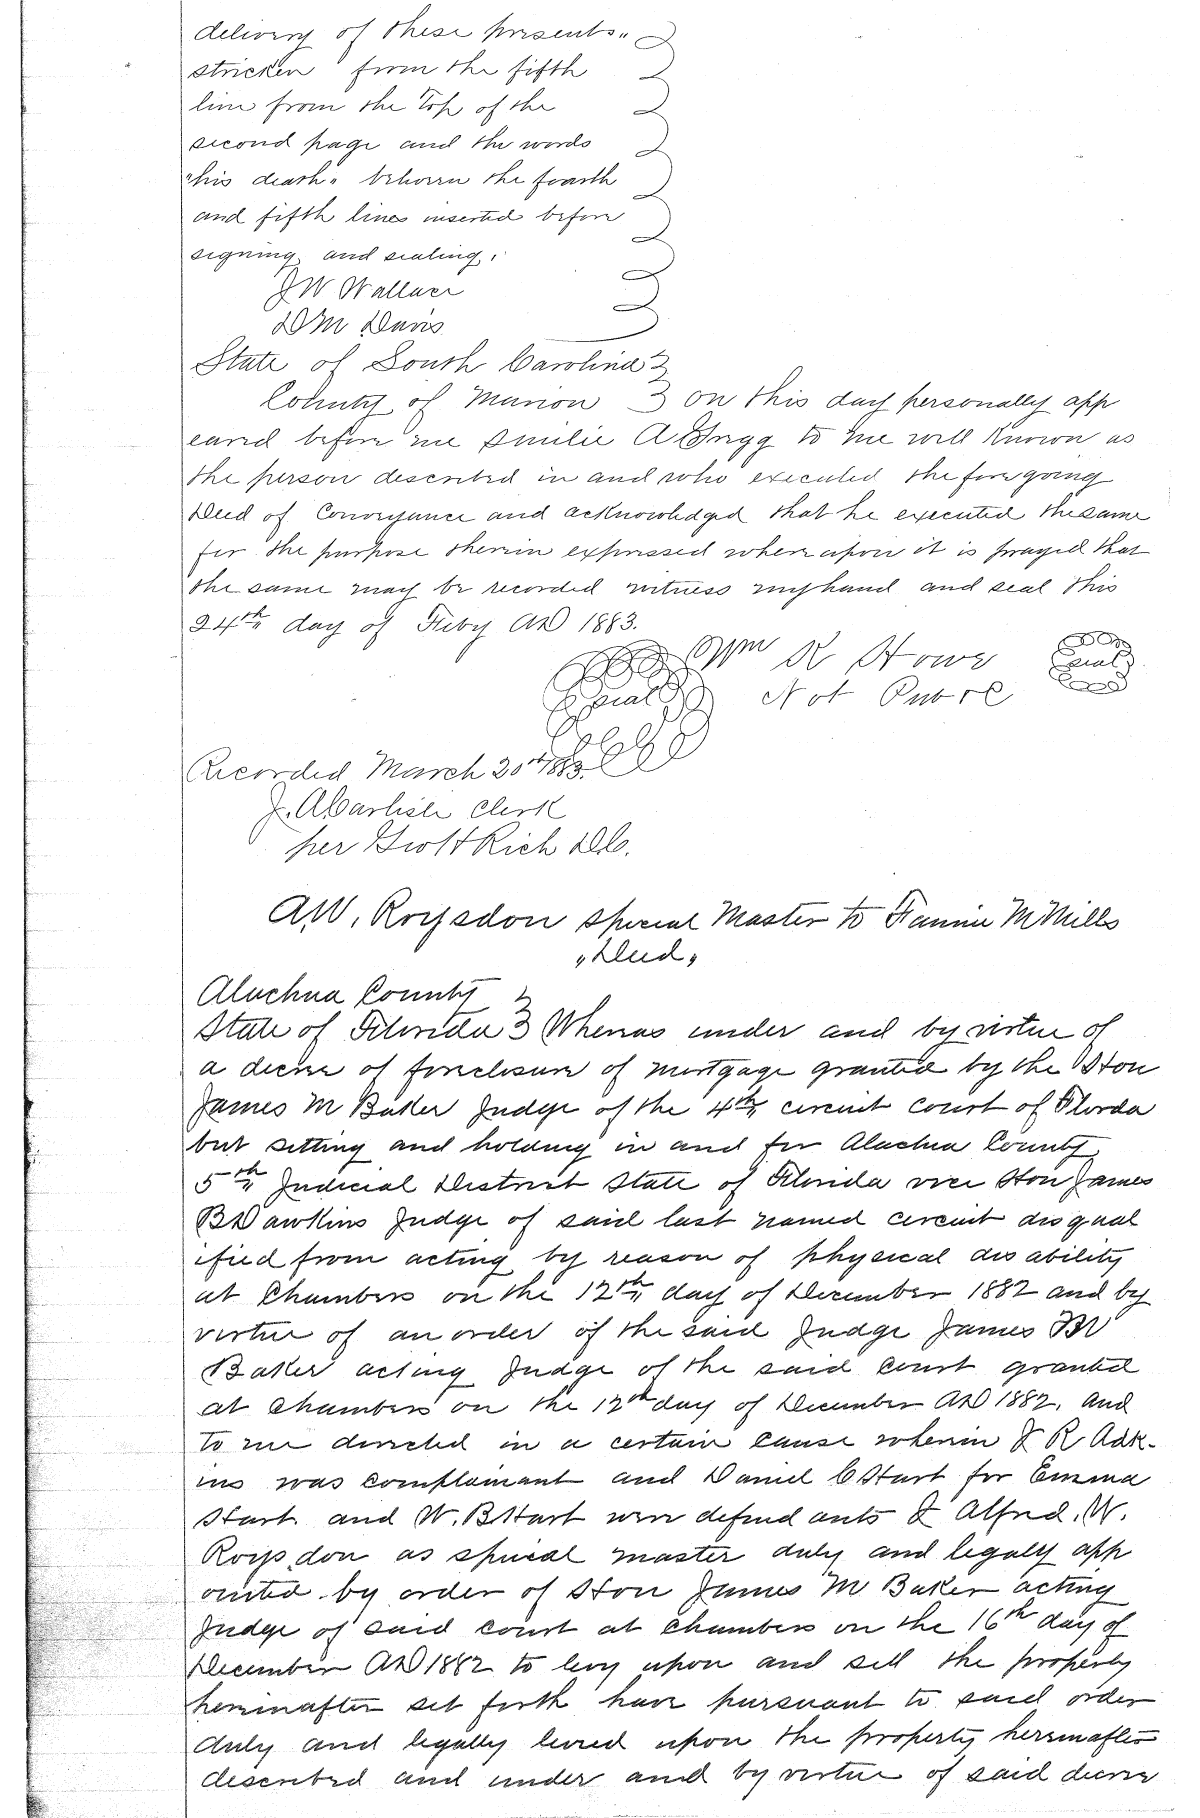 delivery of these presents"
stricken from the fifth
line from the Top of the
second page and the words
"his death" between the fourth
and fifth lines inserted before
signing and sealing.
J W Wallace
D M Davis
State of South Carolina
County of Marion on this day personally app
eared before me Emilie A Gregg to me well known as
the person described in and who executed the foregoing
Deed of Conveyance and acknowledged that he executed the same
for the purpose therein expressed where upon it is prayed that
the same may be recorded witness my hand and seal this
24th day of Feby AD 1883.
Wm R Howe seal
seal Not Public
Recorded March 20th 1883.
J. A Carlisle Clerk
per Rich D.C.
A.W. Roysdon special Master to Fannie M Mills
"Deed"
Alachua County
State of Florida Whereas under and by virtue of
a decree of foreclosure of mortgage granted by the Hon
James M Baker Judge of the 4th circuit court of Florda
but sitting and holding in and for Alachua County
5th Judicial District State of Florida vice Hon James
B Dawkins Judge of said last named circuit disqual
ified from acting by reason of physical dis ability
at Chambers on the 12th day of December 1882 and by
virtue of an order of the said Judge James M
Baker acting Judge of the said court granted
at Chambers on the 12th day of December AD 1882. and
to me directed in a certain cause wherein R Adk-
ins was complainant and Daniel C Hart for Emma
Hart and W. B Hart were defend ants I Alfred. W.
Roysdon as special master duly and legaly app
ointed by order of Hon James M Baker acting
Judge of said court at Chambers on the 16th day of
December AD 1882 to levy upon and sell the property
hereinafter set forth have pursuant to said order
duly and legally levied upon the property hereinafter
described and under and by virtue of said decree